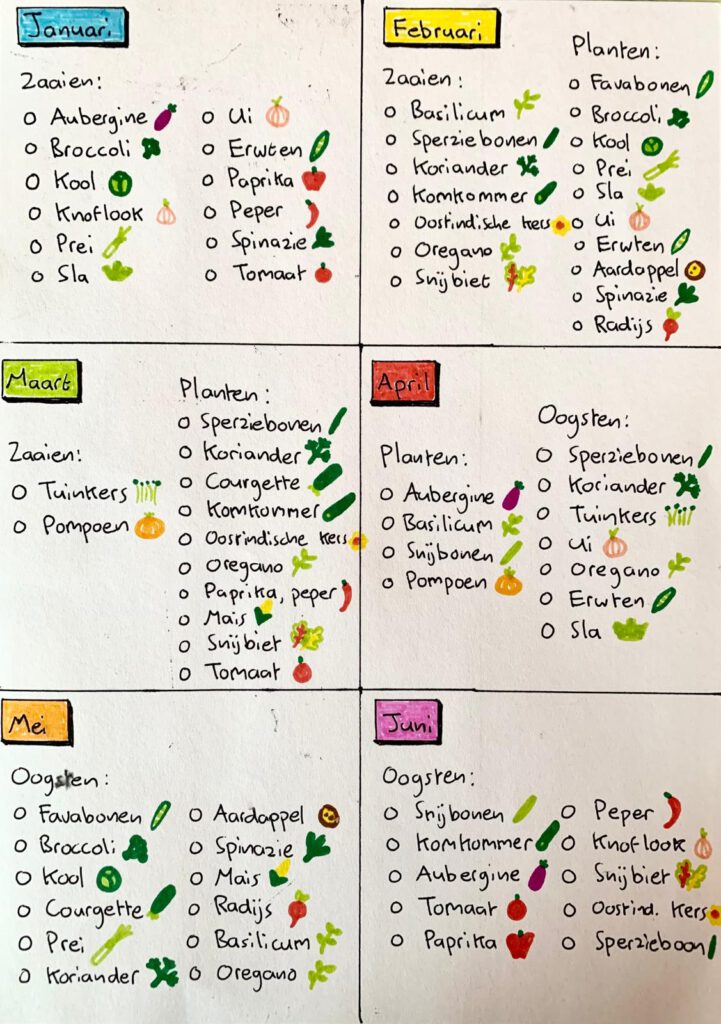 Januari
Zaaien:
Aubergine
Broccoli
Kool
Knoflook
Prei
Sla
Ui
Erwten
Paprika
Peper
Spinazie
Tomaat
Februari
Zaaien:
Basilicum
Sperziebonen
Koriander
Komkommer
Oostindische kers
Oregano
Snijbiet
Planten:
Favabonen
Broccoli
Kool
Prei
Sla
Ui
Erwten
Aardappel
Spinazie
Radijs
Maart
Zaaien:
Tuinkers
Pompoen
Planten:
Sperziebonen
Koriander
Courgette
Komkommer
Oostindische kers
Oregano
Paprika, peper
Mais
Snijbiet
Tomaat
April
Planten:
Aubergine
Basilicum
Snijbonen
Pompoen
Oogsten:
Sperziebonen
Koriander
Tuinkers
Ui
Oregano
Erwten
Sla
Mei
Oogsten:
Favabonen
Broccoli
Kool
Courgette
Prei
Koriander
Aardappel
Spinazie
Mais
Radijs
Basilicum
Oregano
Juni
Oogsten:
Snijbonen
Komkommer
Aubergine
Tomaat
Paprika
Peper
Knoflook
Snijbiet
Oostind. kers
Sperzieboon